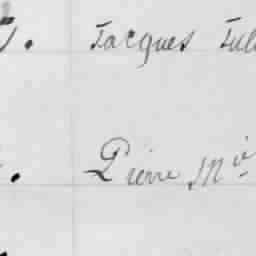 Jacques Jul
Pierre Mie